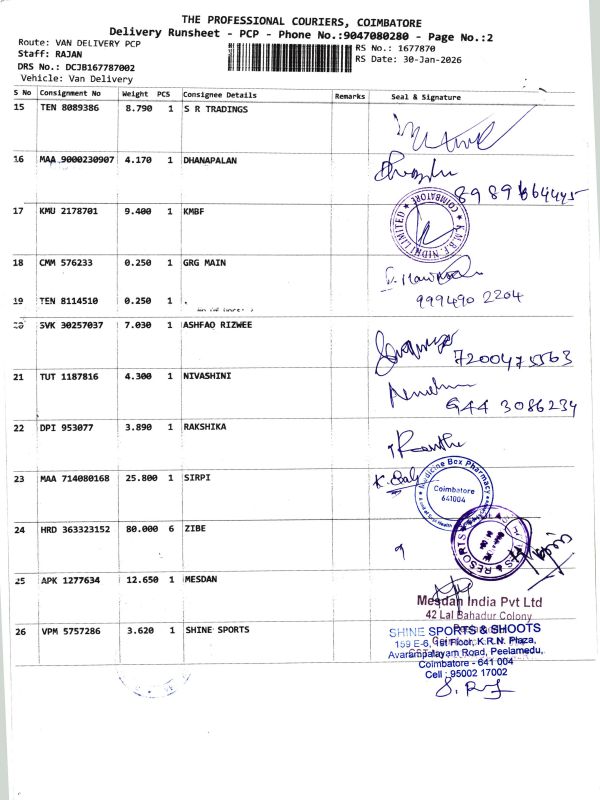 THE PROFESSIONAL COURIERS, COIMBATORE
Delivery Runsheet - PCP - Phone No.:9047080280 - Page No.:2
Route: VAN DELIVERY PCP
Staff: RAJAN
DRS No.: DCJB167787002
Vehicle: Van Delivery
RS No.: 1677870
RS Date: 30-Jan-2026
S No Consignment No Weight PCS Consignee Details Remarks Seal & Signature
15 TEN 8089386 8.790 1 S R TRADINGS
16 MAA 9000230907 4.170 1 DHANAPALAN
17 KMU 2178701 9.400 1 KMBF
K.M.B.F. NIDHI LIMITED
COIMBATORE
18 CMM 576233 0.250 1 GRG MAIN
19 TEN 8114510 0.250 1 .
999490 2204
20 SVK 30257037 7.030 1 ASHFAO RIZWEE
7200475563
21 TUT 1187816 4.300 1 NIVASHINI
944 3086234
22 DPI 953077 3.890 1 RAKSHIKA
23 MAA 714080168 25.800 1 SIRPI
Medicine Box Pharmacy
Coimbatore
641004
24 HRD 363323152 80.000 6 ZIBE
& RESORTS
25 APK 1277634 12.650 1 MESDAN
Mesdan India Pvt Ltd
42 Lal Bahadur Colony
26 VPM 5757286 3.620 1 SHINE SPORTS
SHINE SPORTS & SHOOTS
159 E-6, 1st Floor, K.R.N. Plaza,
Avarampalayam Road, Peelamedu,
Coimbatore - 641 004
Cell : 95002 17002